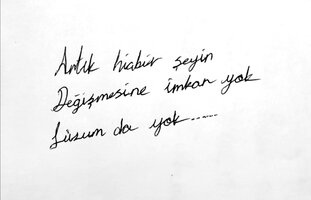 Artık hiçbir şeyin
Değişmesine imkan yok
Lüzum da yok......